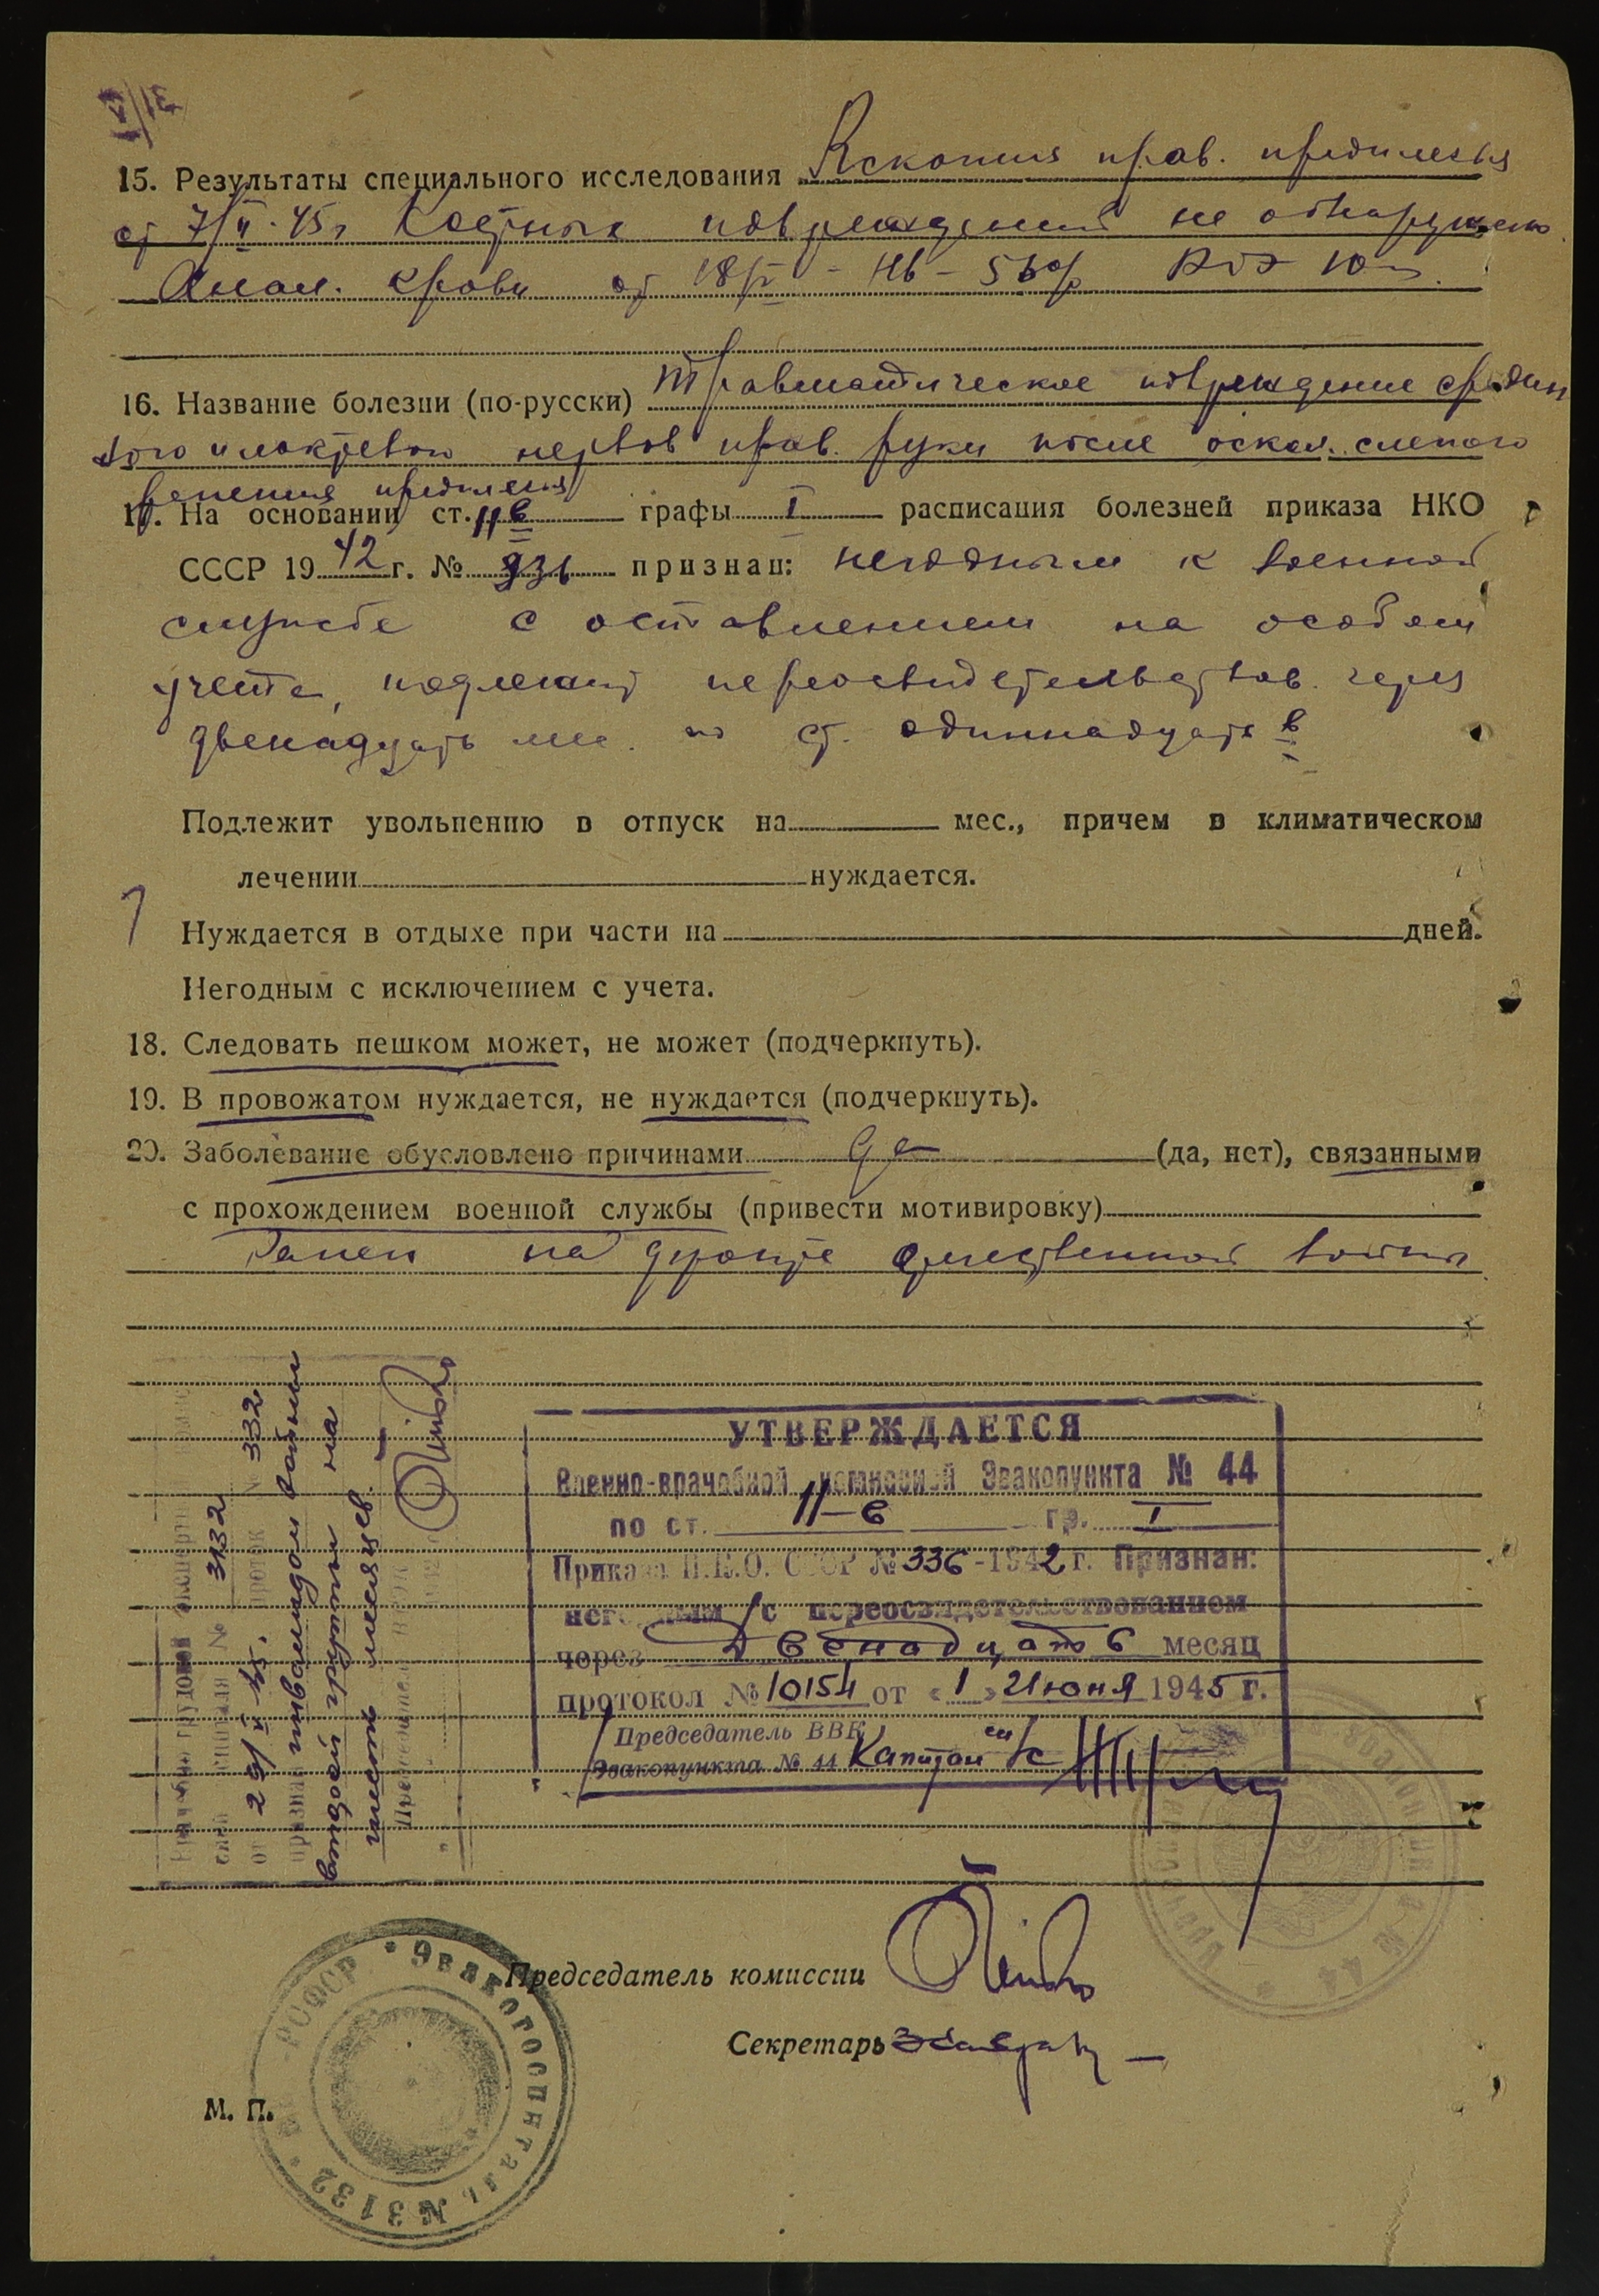 15. Результаты специального исследования Rскопия прав. предплечья
от 7/II-45г Костных повреждений не обнаружено.
Анал. крови от 18/V - Hb - 56% РОЭ 10
16. Название болезни (по-русски) Травматическое повреждение средин
ного и локтевого нервов прав. руки после оскол. слепого
ранения предплечья
17. На основании ст. 11в графы I расписания болезней приказа НКО
СССР 1942 г. № 336 признан: негодным к военной
службе с оставлением на особом
учете, подлежит переосвидетельствов. через
двенадцать мес. по ст. одиннадцать в
Подлежит увольнению в отпуск на мес., причем в климатическом
лечении нуждается.
Нуждается в отдыхе при части на дней.
Негодным с исключением с учета.
18. Следовать пешком может, не может (подчеркнуть).
19. В провожатом нуждается, не нуждается (подчеркнуть).
20. Заболевание обусловлено причинами да (да, нет), связанными
с прохождением военной службы (привести мотивировку)
Ранен на фронте отечественной войны
УТВЕРЖДАЕТСЯ
Военно-врачебной комиссией Эвакопункта № 44
по ст. 11-в гр. I
Приказа Н.К.О. СССР № 336-1942 г. Признан:
негодным /с переосвидетельствованием
через Двенадцать месяц
протокол № 10154 от «1» июня 1945 г.
Председатель ВВК
Эвакопункта № 44 Капитан м/с
Врачебно трудовой экспертн
госпиталя № 3132
от 29/V 45. проток № 332
признан инвалидом войны
второй группы на
шесть месяцев.
Председатель
Председатель комиссии
Секретарь
М. П.
РСФСР * Эвакогоспиталь № 3132 *
№ 44